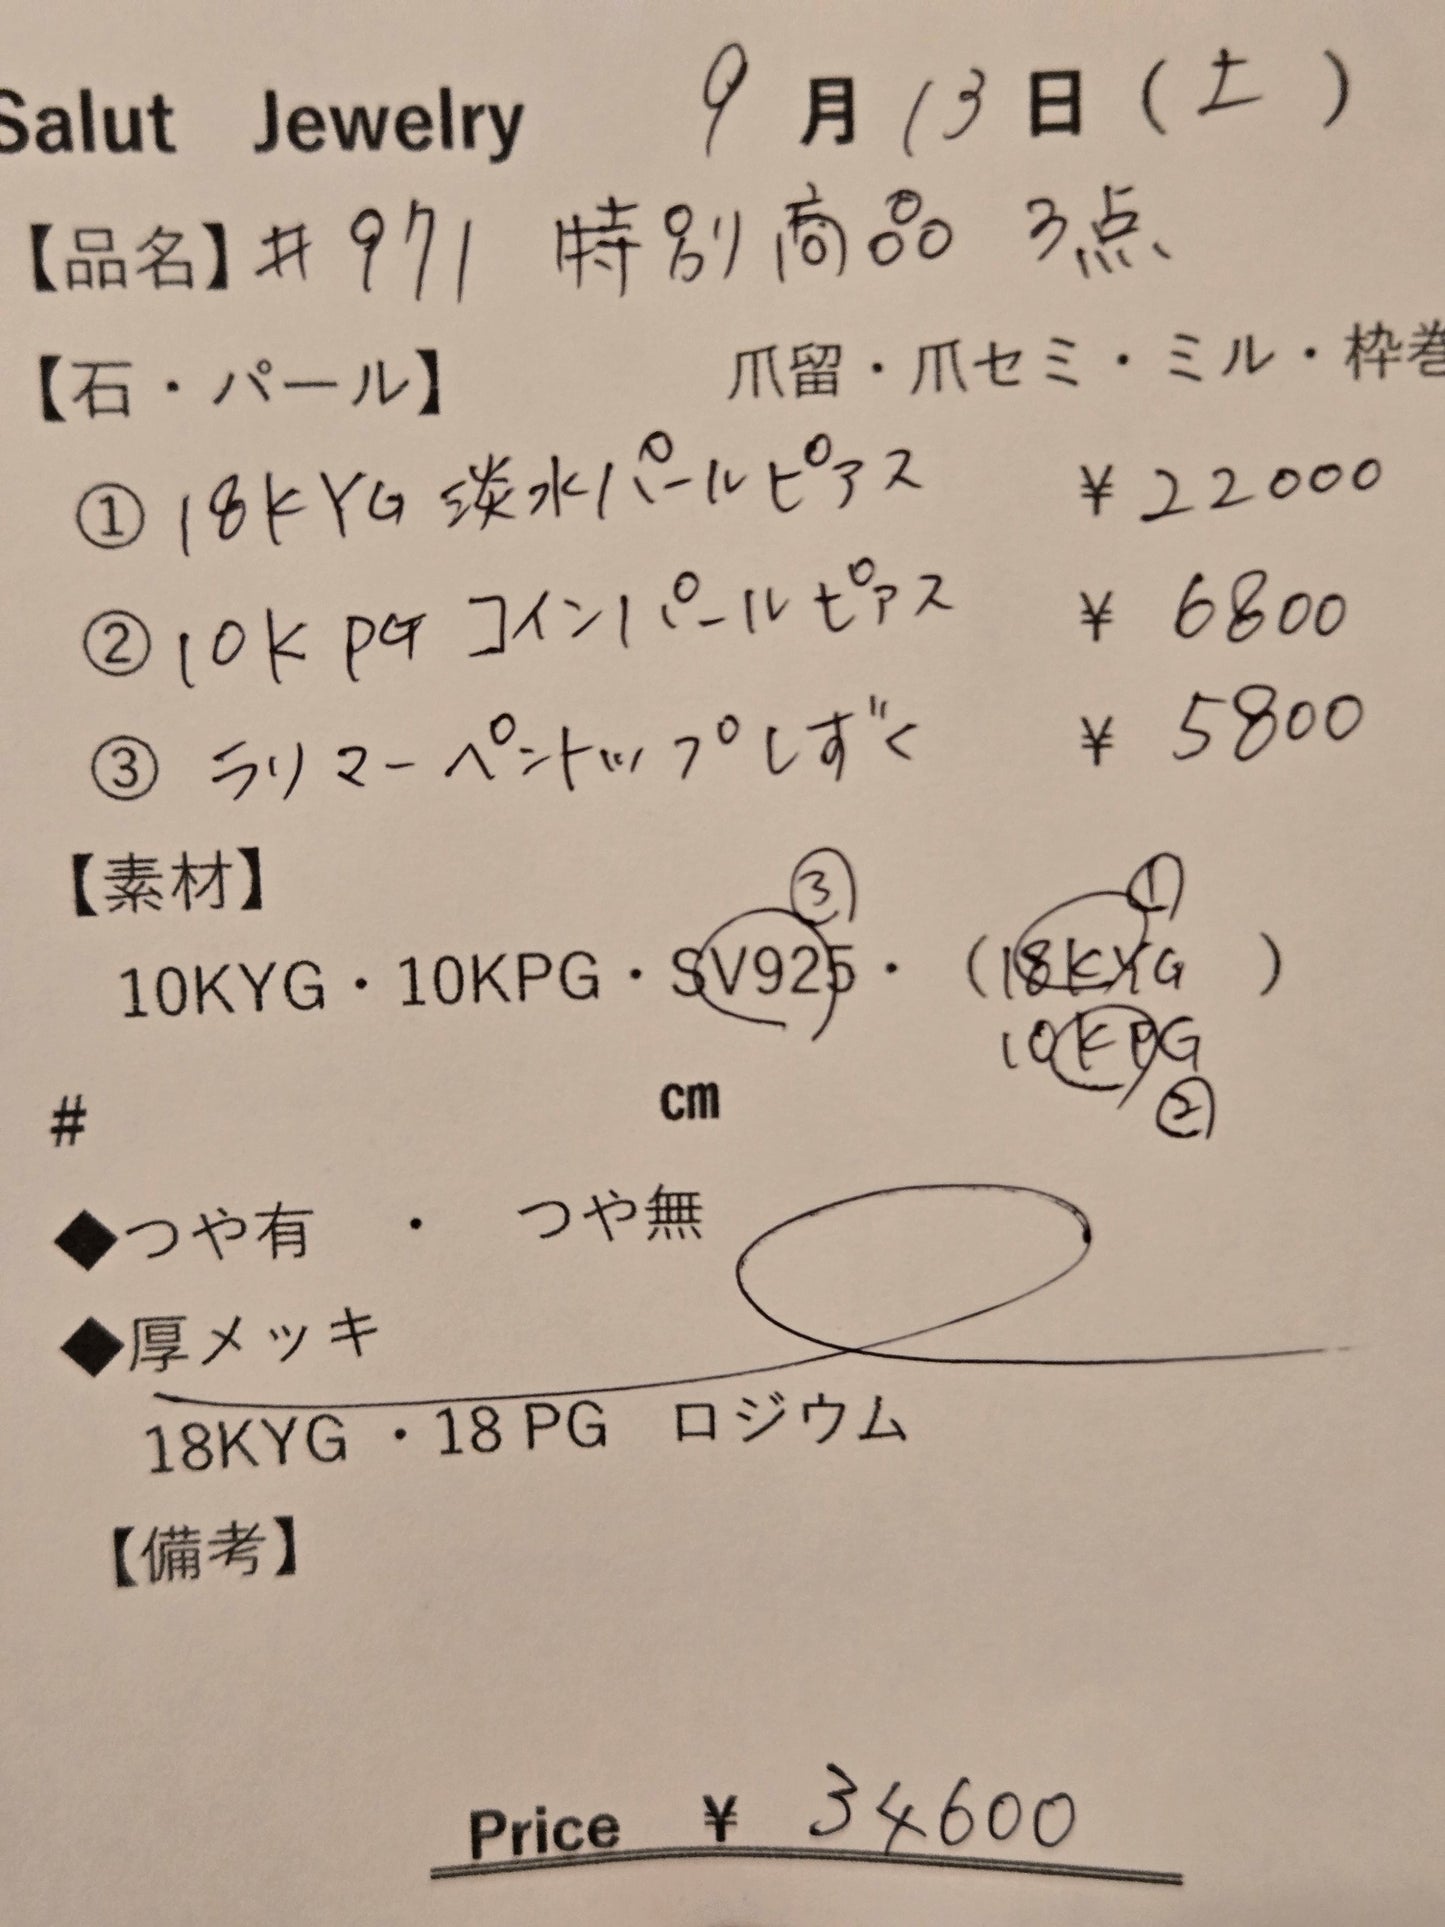 Salut Jewelry 9月13日(土)
【品名】# 971 特別商品 3点
【石・パール】 爪留・爪セミ・ミル・枠巻
① 18KYG 淡水パールピアス ¥22000
② 10K PG コインパールピアス ¥6800
③ ラリマーペントップしずく ¥5800
【素材】
③ ①
10KYG・10KPG・SV925・(18KYG )
10KPG
②
# cm
◆つや有 ・ つや無
◆厚メッキ
18KYG ・18 PG ロジウム
【備考】
Price ¥ 34600